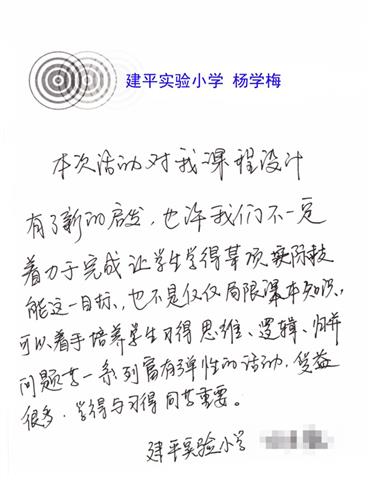 建平实验小学 杨学梅
本次活动对我课程设计
有了新的启发，也许我们不一定
着力于完成让学生学得某项实际技
能这一目标，也不是仅仅局限课本知识，
可以着手培养学生习得思维、逻辑、归并
问题等一系列富有弹性的活动，货益
很多，学得与习得同等重要。
建平实验小学